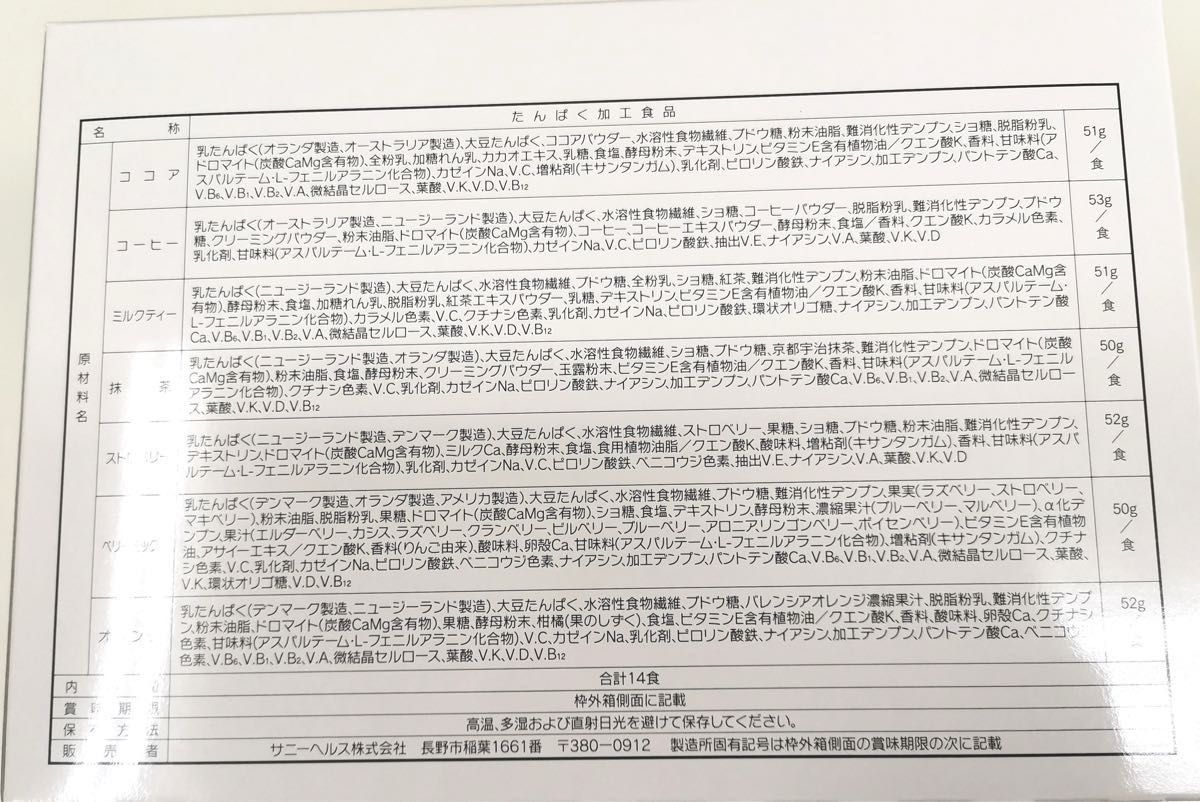 名称 たんぱく加工食品
原材料名
ココア
乳たんぱく(オランダ製造、オーストラリア製造)、大豆たんぱく、ココアパウダー、水溶性食物繊維、ブドウ糖、粉末油脂、難消化性デンプン、ショ糖、脱脂粉乳、
ドロマイト(炭酸CaMg含有物)、全粉乳、加糖れん乳、カカオエキス、乳糖、食塩、酵母粉末、デキストリン、ビタミンE含有植物油／クエン酸K、香料、甘味料(ア
スパルテーム・L-フェニルアラニン化合物)、カゼインNa、V.C、増粘剤(キサンタンガム)、乳化剤、ピロリン酸鉄、ナイアシン、加工デンプン、パントテン酸Ca、
V.B6、V.B1、V.B2、V.A、微結晶セルロース、葉酸、V.K、V.D、V.B12
51g／食
コーヒー
乳たんぱく(オーストラリア製造、ニュージーランド製造)、大豆たんぱく、水溶性食物繊維、ショ糖、コーヒーパウダー、脱脂粉乳、難消化性デンプン、ブドウ
糖、クリーミングパウダー、粉末油脂、ドロマイト(炭酸CaMg含有物)、コーヒー、コーヒーエキスパウダー、酵母粉末、食塩／香料、クエン酸K、カラメル色素、
乳化剤、甘味料(アスパルテーム・L-フェニルアラニン化合物)、カゼインNa、V.C、ピロリン酸鉄、抽出V.E、ナイアシン、V.A、葉酸、V.K、V.D
53g／食
ミルクティー
乳たんぱく(ニュージーランド製造)、大豆たんぱく、水溶性食物繊維、ブドウ糖、全粉乳、ショ糖、紅茶、難消化性デンプン、粉末油脂、ドロマイト(炭酸CaMg含
有物)、酵母粉末、食塩、加糖れん乳、脱脂粉乳、紅茶エキスパウダー、乳糖、デキストリン、ビタミンE含有植物油／クエン酸K、香料、甘味料(アスパルテーム・
L-フェニルアラニン化合物)、カラメル色素、V.C、クチナシ色素、乳化剤、カゼインNa、ピロリン酸鉄、環状オリゴ糖、ナイアシン、加工デンプン、パントテン酸
Ca、V.B6、V.B1、V.B2、V.A、微結晶セルロース、葉酸、V.K、V.D、V.B12
51g／食
抹茶
乳たんぱく(ニュージーランド製造、オランダ製造)、大豆たんぱく、水溶性食物繊維、ショ糖、ブドウ糖、京都宇治抹茶、難消化性デンプン、ドロマイト(炭酸
CaMg含有物)、粉末油脂、食塩、酵母粉末、クリーミングパウダー、玉露粉末、ビタミンE含有植物油／クエン酸K、香料、甘味料(アスパルテーム・L-フェニル
アラニン化合物)、クチナシ色素、V.C、乳化剤、カゼインNa、ピロリン酸鉄、ナイアシン、加工デンプン、パントテン酸Ca、V.B6、V.B1、V.B2、V.A、微結晶セルロー
ス、葉酸、V.K、V.D、V.B12
50g／食
ストロベリー
乳たんぱく(ニュージーランド製造、デンマーク製造)、大豆たんぱく、水溶性食物繊維、ストロベリー、果糖、ショ糖、ブドウ糖、粉末油脂、難消化性デンプン、
デキストリン、ドロマイト(炭酸CaMg含有物)、ミルクCa、酵母粉末、食塩、食用植物油脂／クエン酸K、酸味料、増粘剤(キサンタンガム)、香料、甘味料(アスパ
ルテーム・L-フェニルアラニン化合物)、乳化剤、カゼインNa、V.C、ピロリン酸鉄、ベニコウジ色素、抽出V.E、ナイアシン、V.A、葉酸、V.K、V.D
52g／食
乳たんぱく(デンマーク製造、オランダ製造、アメリカ製造)、大豆たんぱく、水溶性食物繊維、ブドウ糖、難消化性デンプン、果実(ラズベリー、ストロベリー、
マキベリー)、粉末油脂、脱脂粉乳、果糖、ドロマイト(炭酸CaMg含有物)、ショ糖、食塩、デキストリン、酵母粉末、濃縮果汁(ブルーベリー、マルベリー)、α化デ
ンプン、果汁(エルダーベリー、カシス、ラズベリー、クランベリー、ビルベリー、ブルーベリー、アロニアリンゴンベリー、ボイセンベリー)、ビタミンE含有植物
油、アサイーエキス／クエン酸K、香料(りんご由来)、酸味料、卵殻Ca、甘味料(アスパルテーム・L-フェニルアラニン化合物)、増粘剤(キサンタンガム)、クチナ
シ色素、V.C、乳化剤、カゼインNa、ピロリン酸鉄、ベニコウジ色素、ナイアシン、加工デンプン、パントテン酸Ca、V.B6、V.B1、V.B2、V.A、微結晶セルロース、葉酸、
V.K、環状オリゴ糖、V.D、V.B12
50g／食
乳たんぱく(デンマーク製造、ニュージーランド製造)、大豆たんぱく、水溶性食物繊維、ブドウ糖、バレンシアオレンジ濃縮果汁、脱脂粉乳、難消化性デンプ
ン、粉末油脂、ドロマイト(炭酸CaMg含有物)、果糖、酵母粉末、柑橘(果のしずく)、食塩、ビタミンE含有植物油／クエン酸K、香料、酸味料、卵殻Ca、クチナシ
色素、甘味料(アスパルテーム・L-フェニルアラニン化合物)、V.C、カゼインNa、乳化剤、ピロリン酸鉄、ナイアシン、加工デンプン、パントテン酸Ca、ベニコウジ
色素、V.B6、V.B1、V.B2、V.A、微結晶セルロース、葉酸、V.K、V.D、V.B12
52g／食
合計14食
賞味期限 枠外箱側面に記載
保存方法 高温、多湿および直射日光を避けて保存してください。
販売者 サニーヘルス株式会社 長野市稲葉1661番 〒380-0912 製造所固有記号は枠外箱側面の賞味期限の次に記載